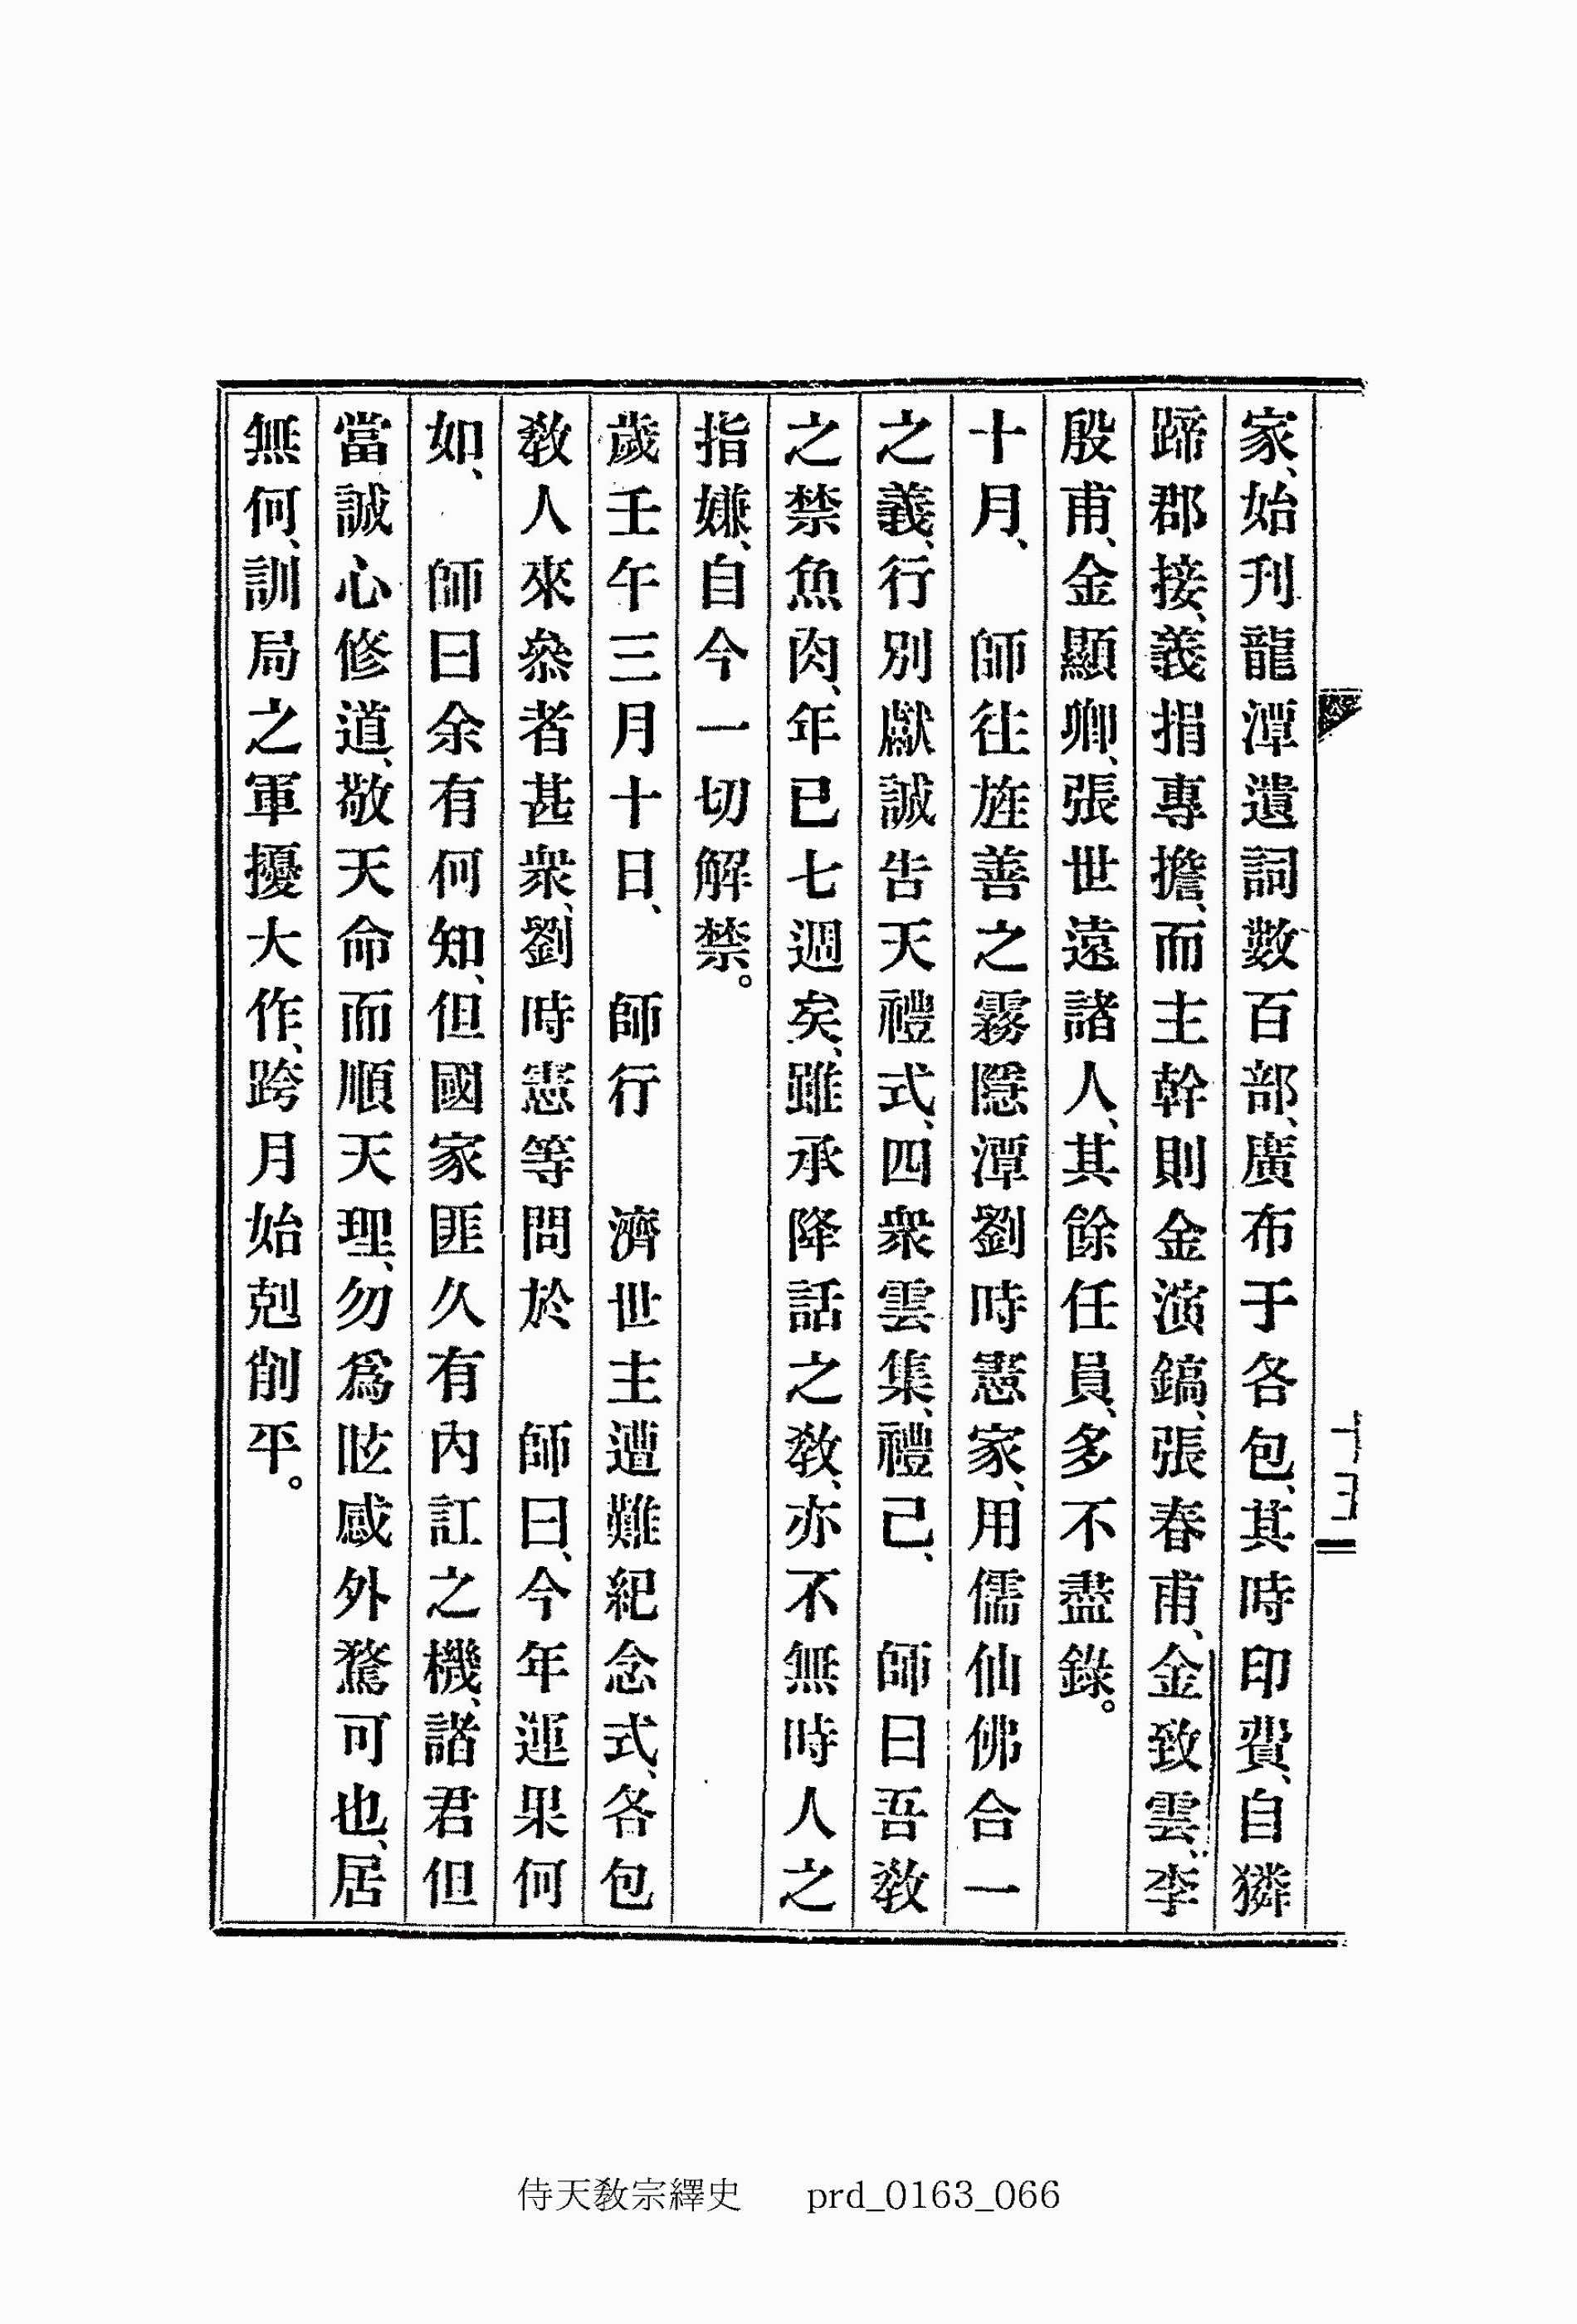 家、始刋龍潭遺詞數百部、廣布于各包、其時印費、自獜
蹄郡接、義捐專擔、而主幹則金演鎬、張春甫、金致雲、李
殷甫、金顯卿、張世遠諸人、其餘任員、多不盡錄。
十月、　師往旌善之霧隱潭劉時憲家、用儒仙佛合一
之義、行別獻誠告天禮式、四衆雲集、禮已、　師曰吾敎
之禁魚肉、年已七週矣、雖承降話之敎、亦不無時人之
指嫌、自今一切解禁。
歲壬午三月十日、　師行　濟世主遭難紀念式、各包
敎人來叅者甚衆、劉時憲等問於　師曰、今年運果何
如、　師曰余有何知、但國家匪久有內訌之機、諸君但
當誠心修道、敬天命而順天理、勿爲眩惑外騖可也、居
無何、訓局之軍擾大作、跨月始剋削平。
侍天敎宗繹史　prd_0163_066